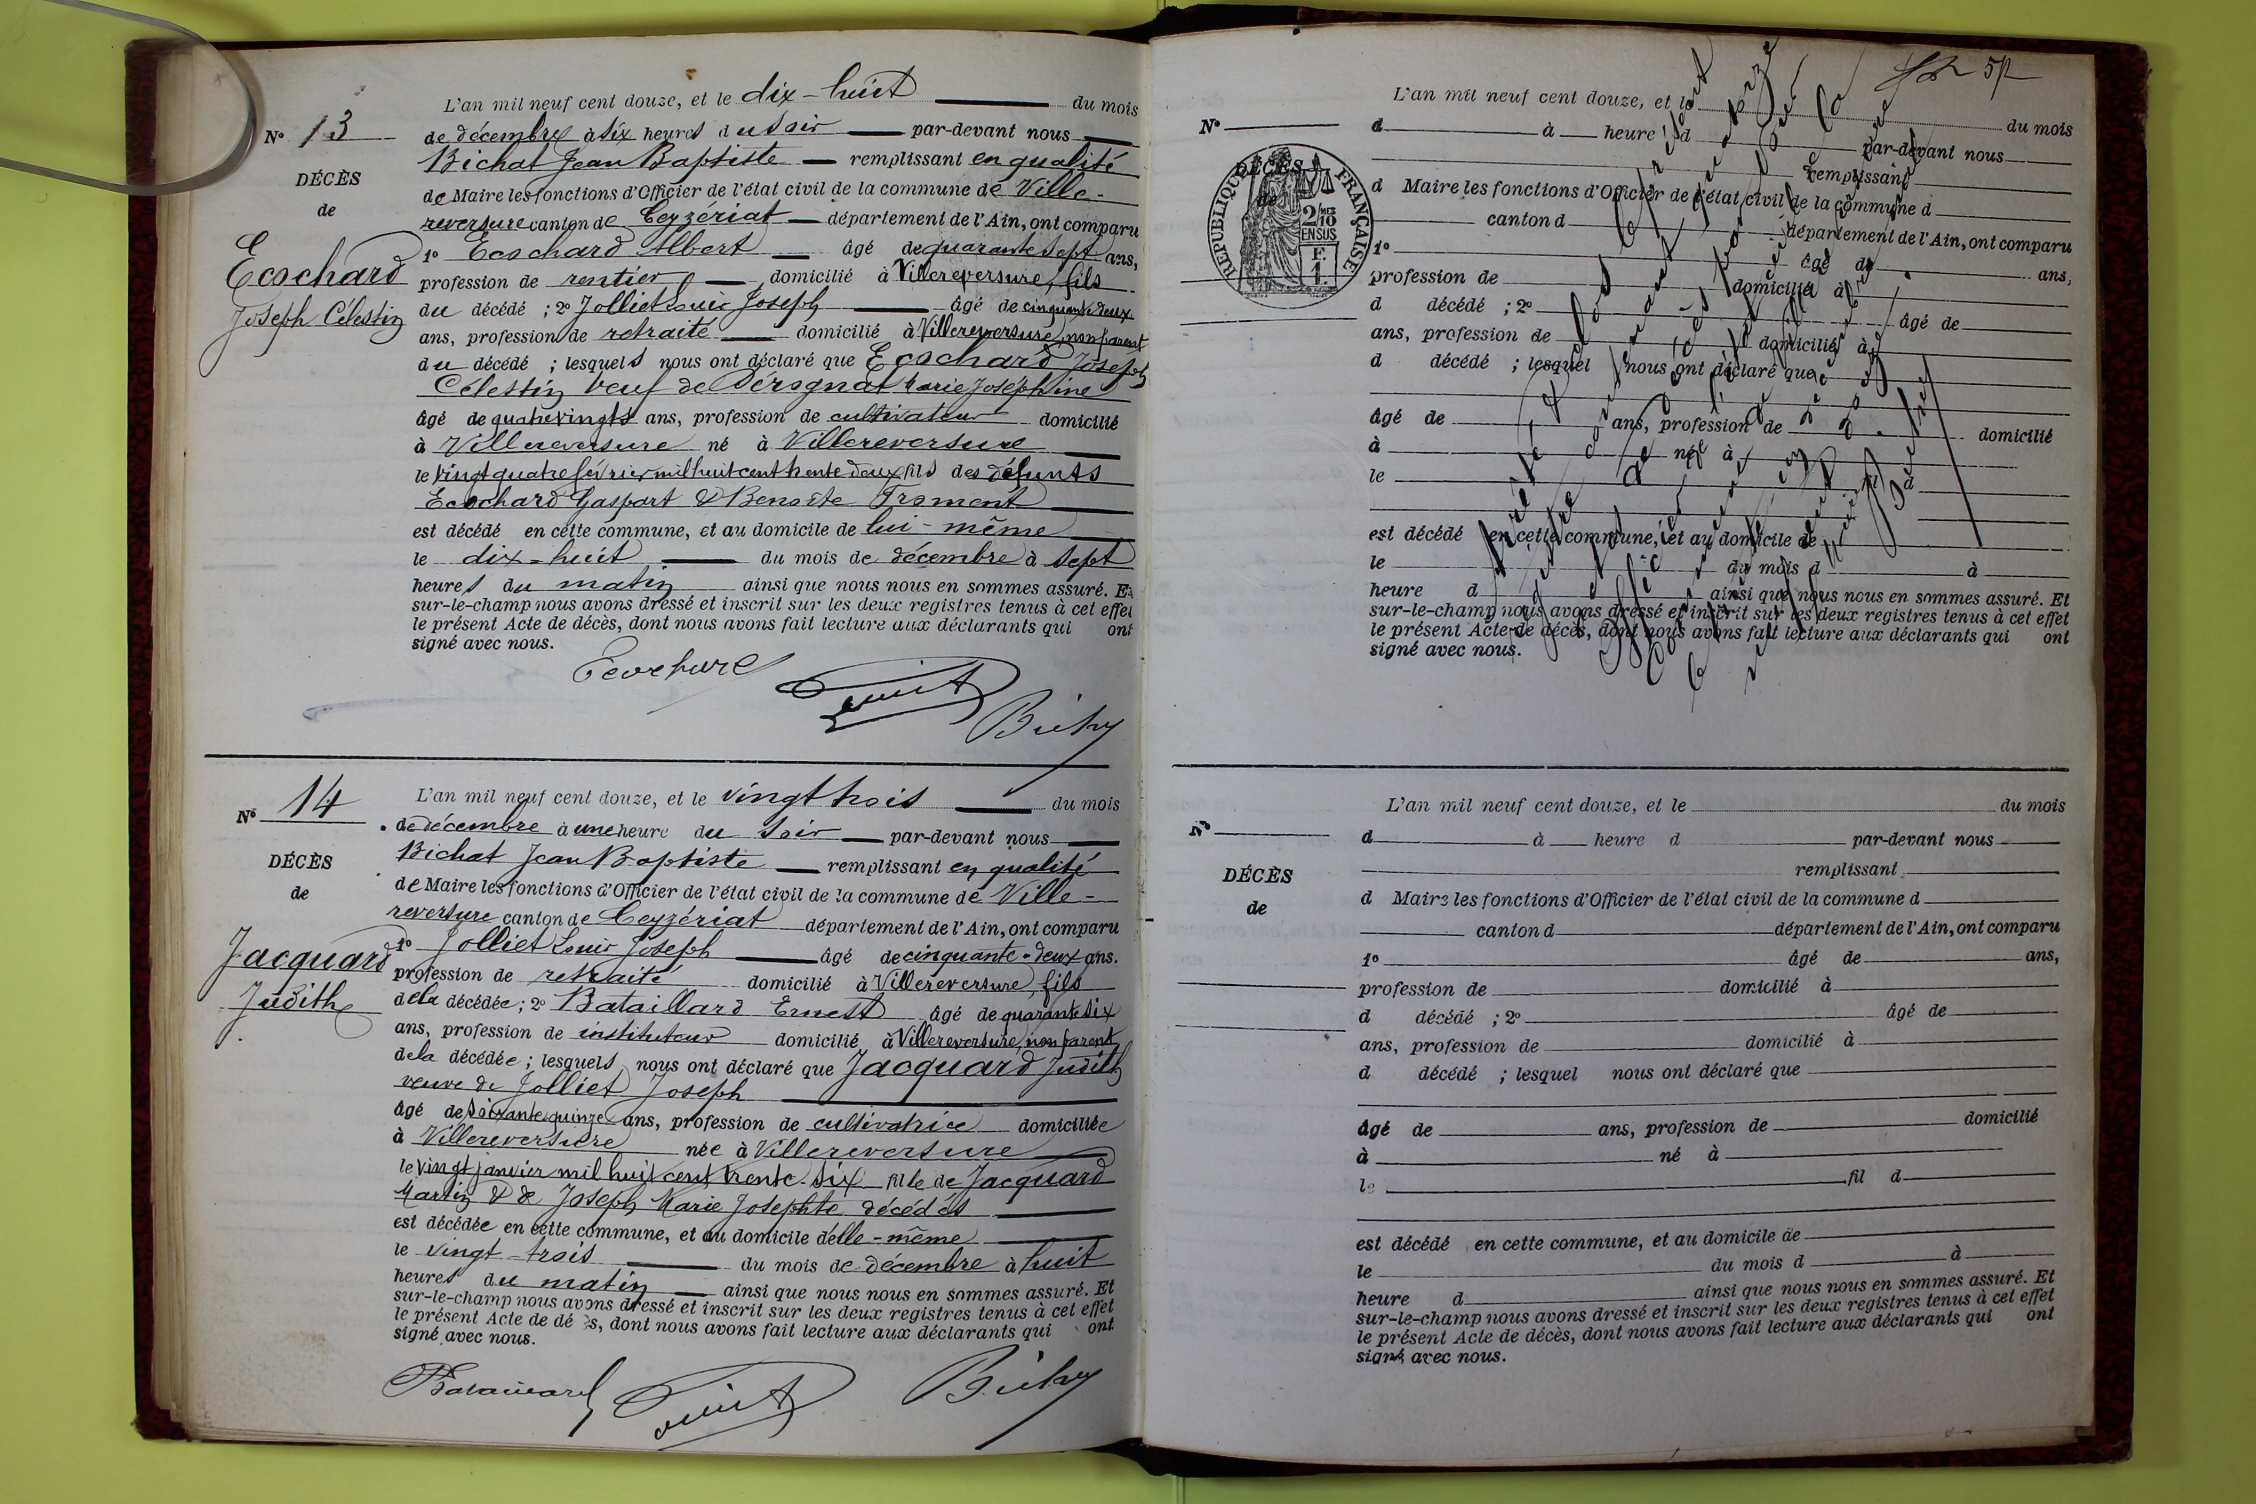 N° 13
DÉCÈS
de
Ecochard
Joseph Célestin
L'an mil neuf cent douze, et le dix-huit du mois
de décembre à six heures du soir par-devant nous
Bichat Jean Baptiste remplissant en qualité
de Maire les fonctions d'Officier de l'état civil de la commune de Ville-
reversure canton de Ceyzériat département de l'Ain, ont comparu
1° Ecochard Albert âgé de quarante sept ans,
profession de rentier domicilié à Villereversure, fils
du décédé ; 2° Jolliet Louis Joseph âgé de cinquante deux
ans, profession de retraité domicilié à Villereversure, non parent
du décédé ; lesquels nous ont déclaré que Ecochard Joseph
Célestin veuf de Pérognat Marie Joséphine
âgé de quatrevingts ans, profession de cultivateur domicilié
à Villereversure né à Villereversure
le vingt quatre février mil huit cent trente deux fils des défunts
Ecochard Gaspart & Benoîte Froment
est décédé en cette commune, et au domicile de lui-même
le dix-huit du mois de décembre à sept
heures du matin ainsi que nous nous en sommes assuré. Et
sur-le-champ nous avons dressé et inscrit sur les deux registres tenus à cet effet
le présent Acte de décès, dont nous avons fait lecture aux déclarants qui ont
signé avec nous.
N° 14
DÉCÈS
de
Jacquard
Judith
L'an mil neuf cent douze, et le vingt trois du mois
de décembre à une heure du soir par-devant nous
Bichat Jean Baptiste remplissant en qualité
de Maire les fonctions d'Officier de l'état civil de la commune de Ville-
reversure canton de Ceyzériat département de l'Ain, ont comparu
1° Jolliet Louis Joseph âgé de cinquante-deux ans.
profession de retraité domicilié à Villereversure, fils
de la décédée ; 2° Bataillard Ernest âgé de quarante six
ans, profession de instituteur domicilié à Villereversure, non parent
de la décédée ; lesquels nous ont déclaré que Jacquard Judith
veuve de Jolliet Joseph
âgé de soixante quinze ans, profession de cultivatrice domiciliée
à Villereversure née à Villereversure
le vingt janvier mil huit cent trente-six fille de Jacquard
Martin & de Joseph Marie Josephte décédés
est décédée en cette commune, et au domicile d'elle-même
le vingt-trois du mois de décembre à huit
heures du matin ainsi que nous nous en sommes assuré. Et
sur-le-champ nous avons dressé et inscrit sur les deux registres tenus à cet effet
le présent Acte de dé s, dont nous avons fait lecture aux déclarants qui ont
signé avec nous.
Bataillard
N°
DÉCÈS
de
RÉPUBLIQUE FRANÇAISE
2/10 MES
EN SUS
F.
1.
L'an mil neuf cent douze, et le du mois
d à heure d par-devant nous
remplissant
d Maire les fonctions d'Officier de l'état civil de la commune d
canton d département de l'Ain, ont comparu
1° âgé de ans,
profession de domicilié à
d décédé ; 2° âgé de
ans, profession de domicilié à
d décédé ; lesquel nous ont déclaré que
âgé de ans, profession de domicilié
à né à
le fil d
est décédé en cette commune, et au domicile de
le du mois d à
heure d ainsi que nous nous en sommes assuré. Et
sur-le-champ nous avons dressé et inscrit sur les deux registres tenus à cet effet
le présent Acte de décès, dont nous avons fait lecture aux déclarants qui ont
signé avec nous.
N°
DÉCÈS
de
L'an mil neuf cent douze, et le du mois
d à heure d par-devant nous
remplissant
d Maire les fonctions d'Officier de l'état civil de la commune d
canton d département de l'Ain, ont comparu
1° âgé de ans,
profession de domicilié à
d décédé ; 2° âgé de
ans, profession de domicilié à
d décédé ; lesquel nous ont déclaré que
âgé de ans, profession de domicilié
à né à
le fil d
est décédé en cette commune, et au domicile de
le du mois d à
heure d ainsi que nous nous en sommes assuré. Et
sur-le-champ nous avons dressé et inscrit sur les deux registres tenus à cet effet
le présent Acte de décès, dont nous avons fait lecture aux déclarants qui ont
signé avec nous.